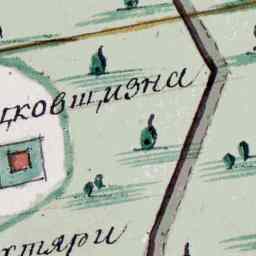 цковщизна
хтяри